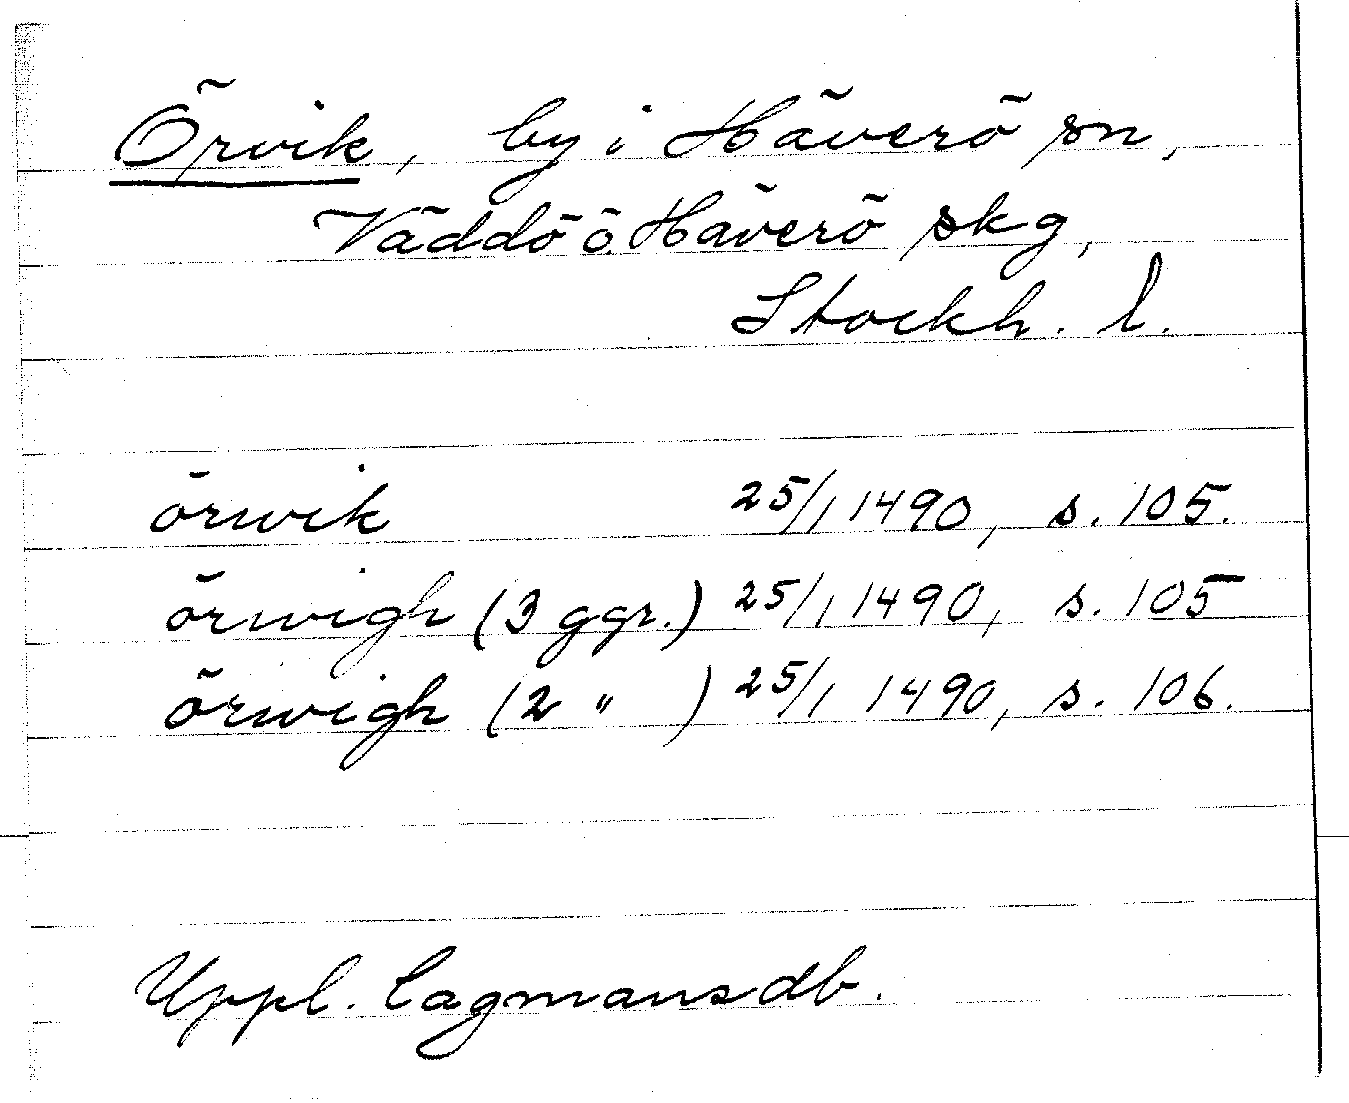 Örvik, by i Häverö sn,
Väddö ö. Häverö skg,
Stockh. l.
örwik 25/1 1490, s. 105.
örwigh (3 ggr.) 25/1 1490, s. 105
örwigh (2 " ) 25/1 1490, s. 106.
Uppl. lagmansdb.